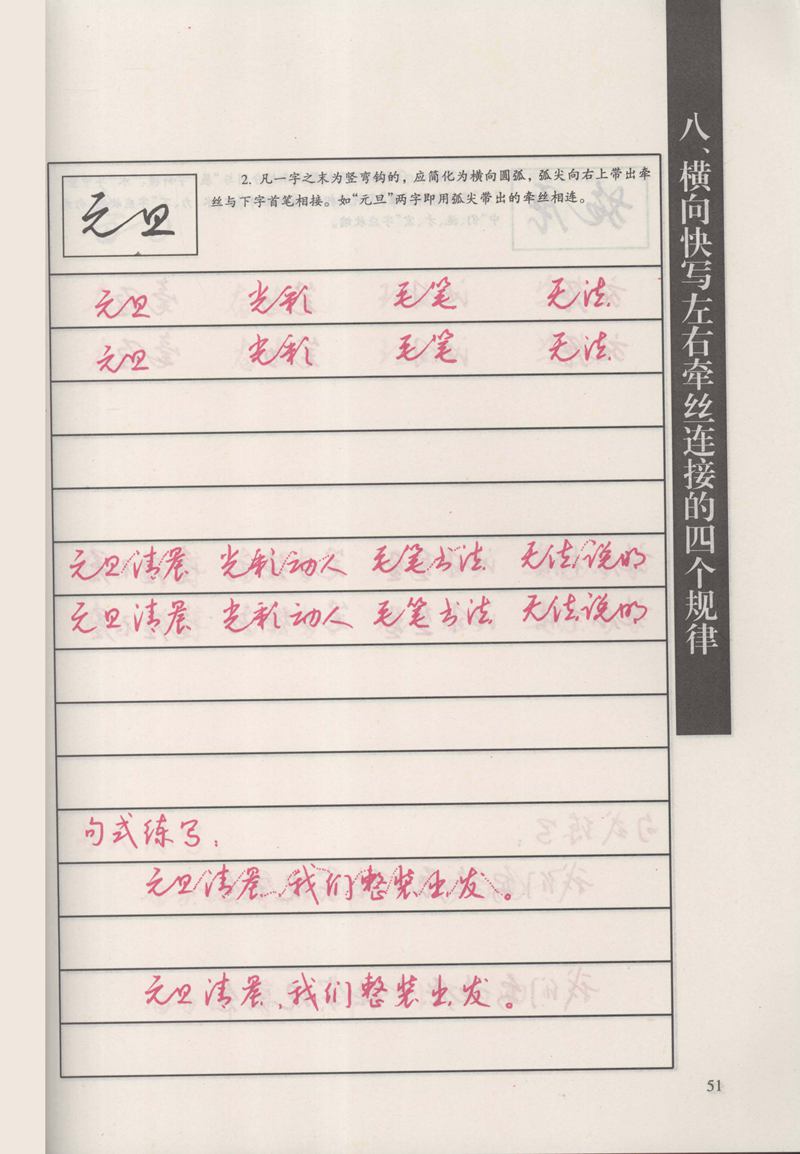 八、横向快写左右牵丝连接的四个规律
元旦
2. 凡一字之末为竖弯钩的，应简化为横向圆弧，弧尖向右上带出牵
丝与下字首笔相接。如“元旦”两字即用弧尖带出的牵丝相连。
元旦 光彩 毛笔 无法
元旦 光彩 毛笔 无法
元旦清晨 光彩动人 毛笔书法 无法说明
元旦清晨 光彩动人 毛笔书法 无法说明
句式练写：
元旦清晨，我们整装出发。
元旦清晨，我们整装出发。
51